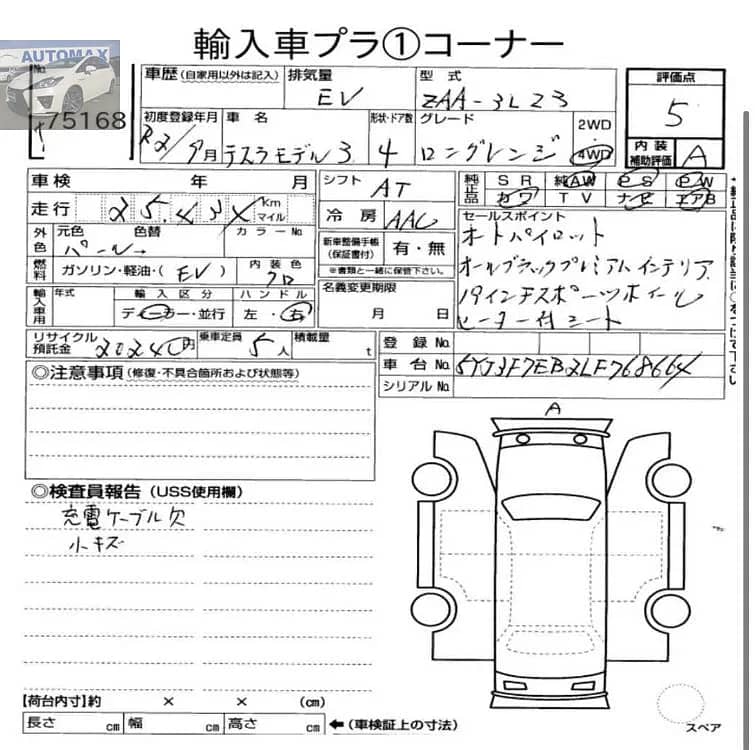 輸入車プラ①コーナー
AUTOMAX
No.
75168
車歴 (自家用以外は記入) 排気量 EV
型式 ZAA-3L23
評価点 5
初度登録年月 R2/9月
車名 テスラモデル3
形状・ドア数 4
グレード ロングレンジ
2WD
4WD
内装補助評価 A
車検 年 月
シフト AT
純正品 SR 純AW PS PW
カワ TV ナビ エアB
走行 25,434 Km マイル
冷房 AAC
セールスポイント
外色 元色 パール 色替 カラーNo
新車整備手帳 (保証書付) 有・無
※書類と一緒に保管下さい。
オートパイロット
オールブラックプレミアムインテリア
19インチスポーツホイール
ヒーター付シート
燃料 ガソリン・軽油・(EV) 内装色 クロ
名義変更期限
月 日
輸入車用 年式 輸入区分 ディーラー・並行 ハンドル 左・右
リサイクル預託金 20240円 乗車定員 5人 積載量 t
登録No.
車台No. 5YJ3F7EB2LF768664
シリアルNo.
◎注意事項 (修復・不具合箇所および状態等)
A
◎検査員報告 (USS使用欄)
充電ケーブル欠
小キズ
【荷台内寸】約 × × (cm)
長さ cm 幅 cm 高さ cm ←(車検証上の寸法)
スペア